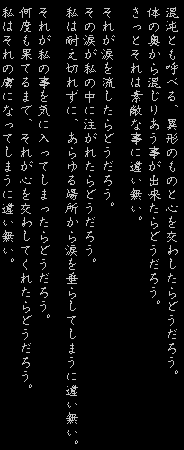 混沌とも呼べる、異形のものと心を交わしたらどうだろう。
体の奥から混じりあう事が出来たらどうだろう。
きっとそれは素敵な事に違い無い。
それが涙を流したらどうだろう。
その涙が私の中に注がれたらどうだろう。
私は耐え切れずに、あらゆる場所から涙を垂らしてしまうに違い無い。
それが私の事を気に入ってしまったらどうだろう。
何度も果てるまで、それが心を交わしてくれたらどうだろう。
私はそれの虜になってしまうに違い無い。